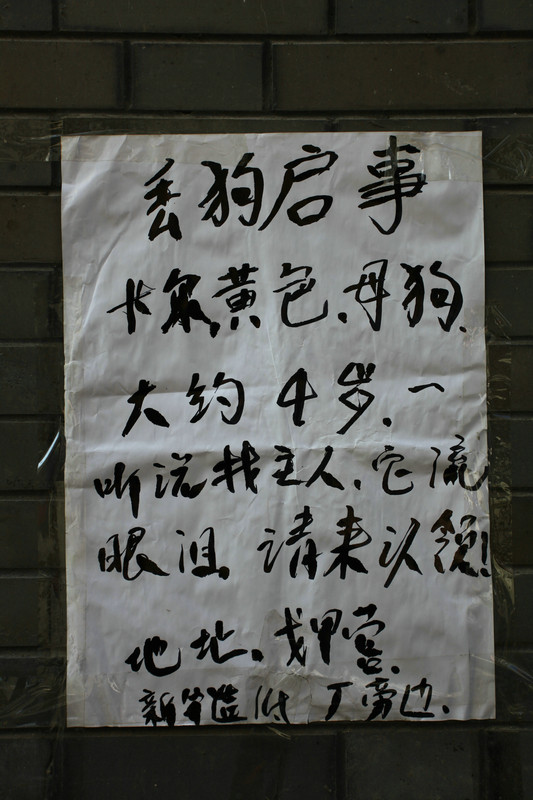 丢狗启事
卡泉,黄色,母狗,
大约4岁,一
听说找主人,它流
眼泪,请来认领!
地址,戈甲营
新 旁边.